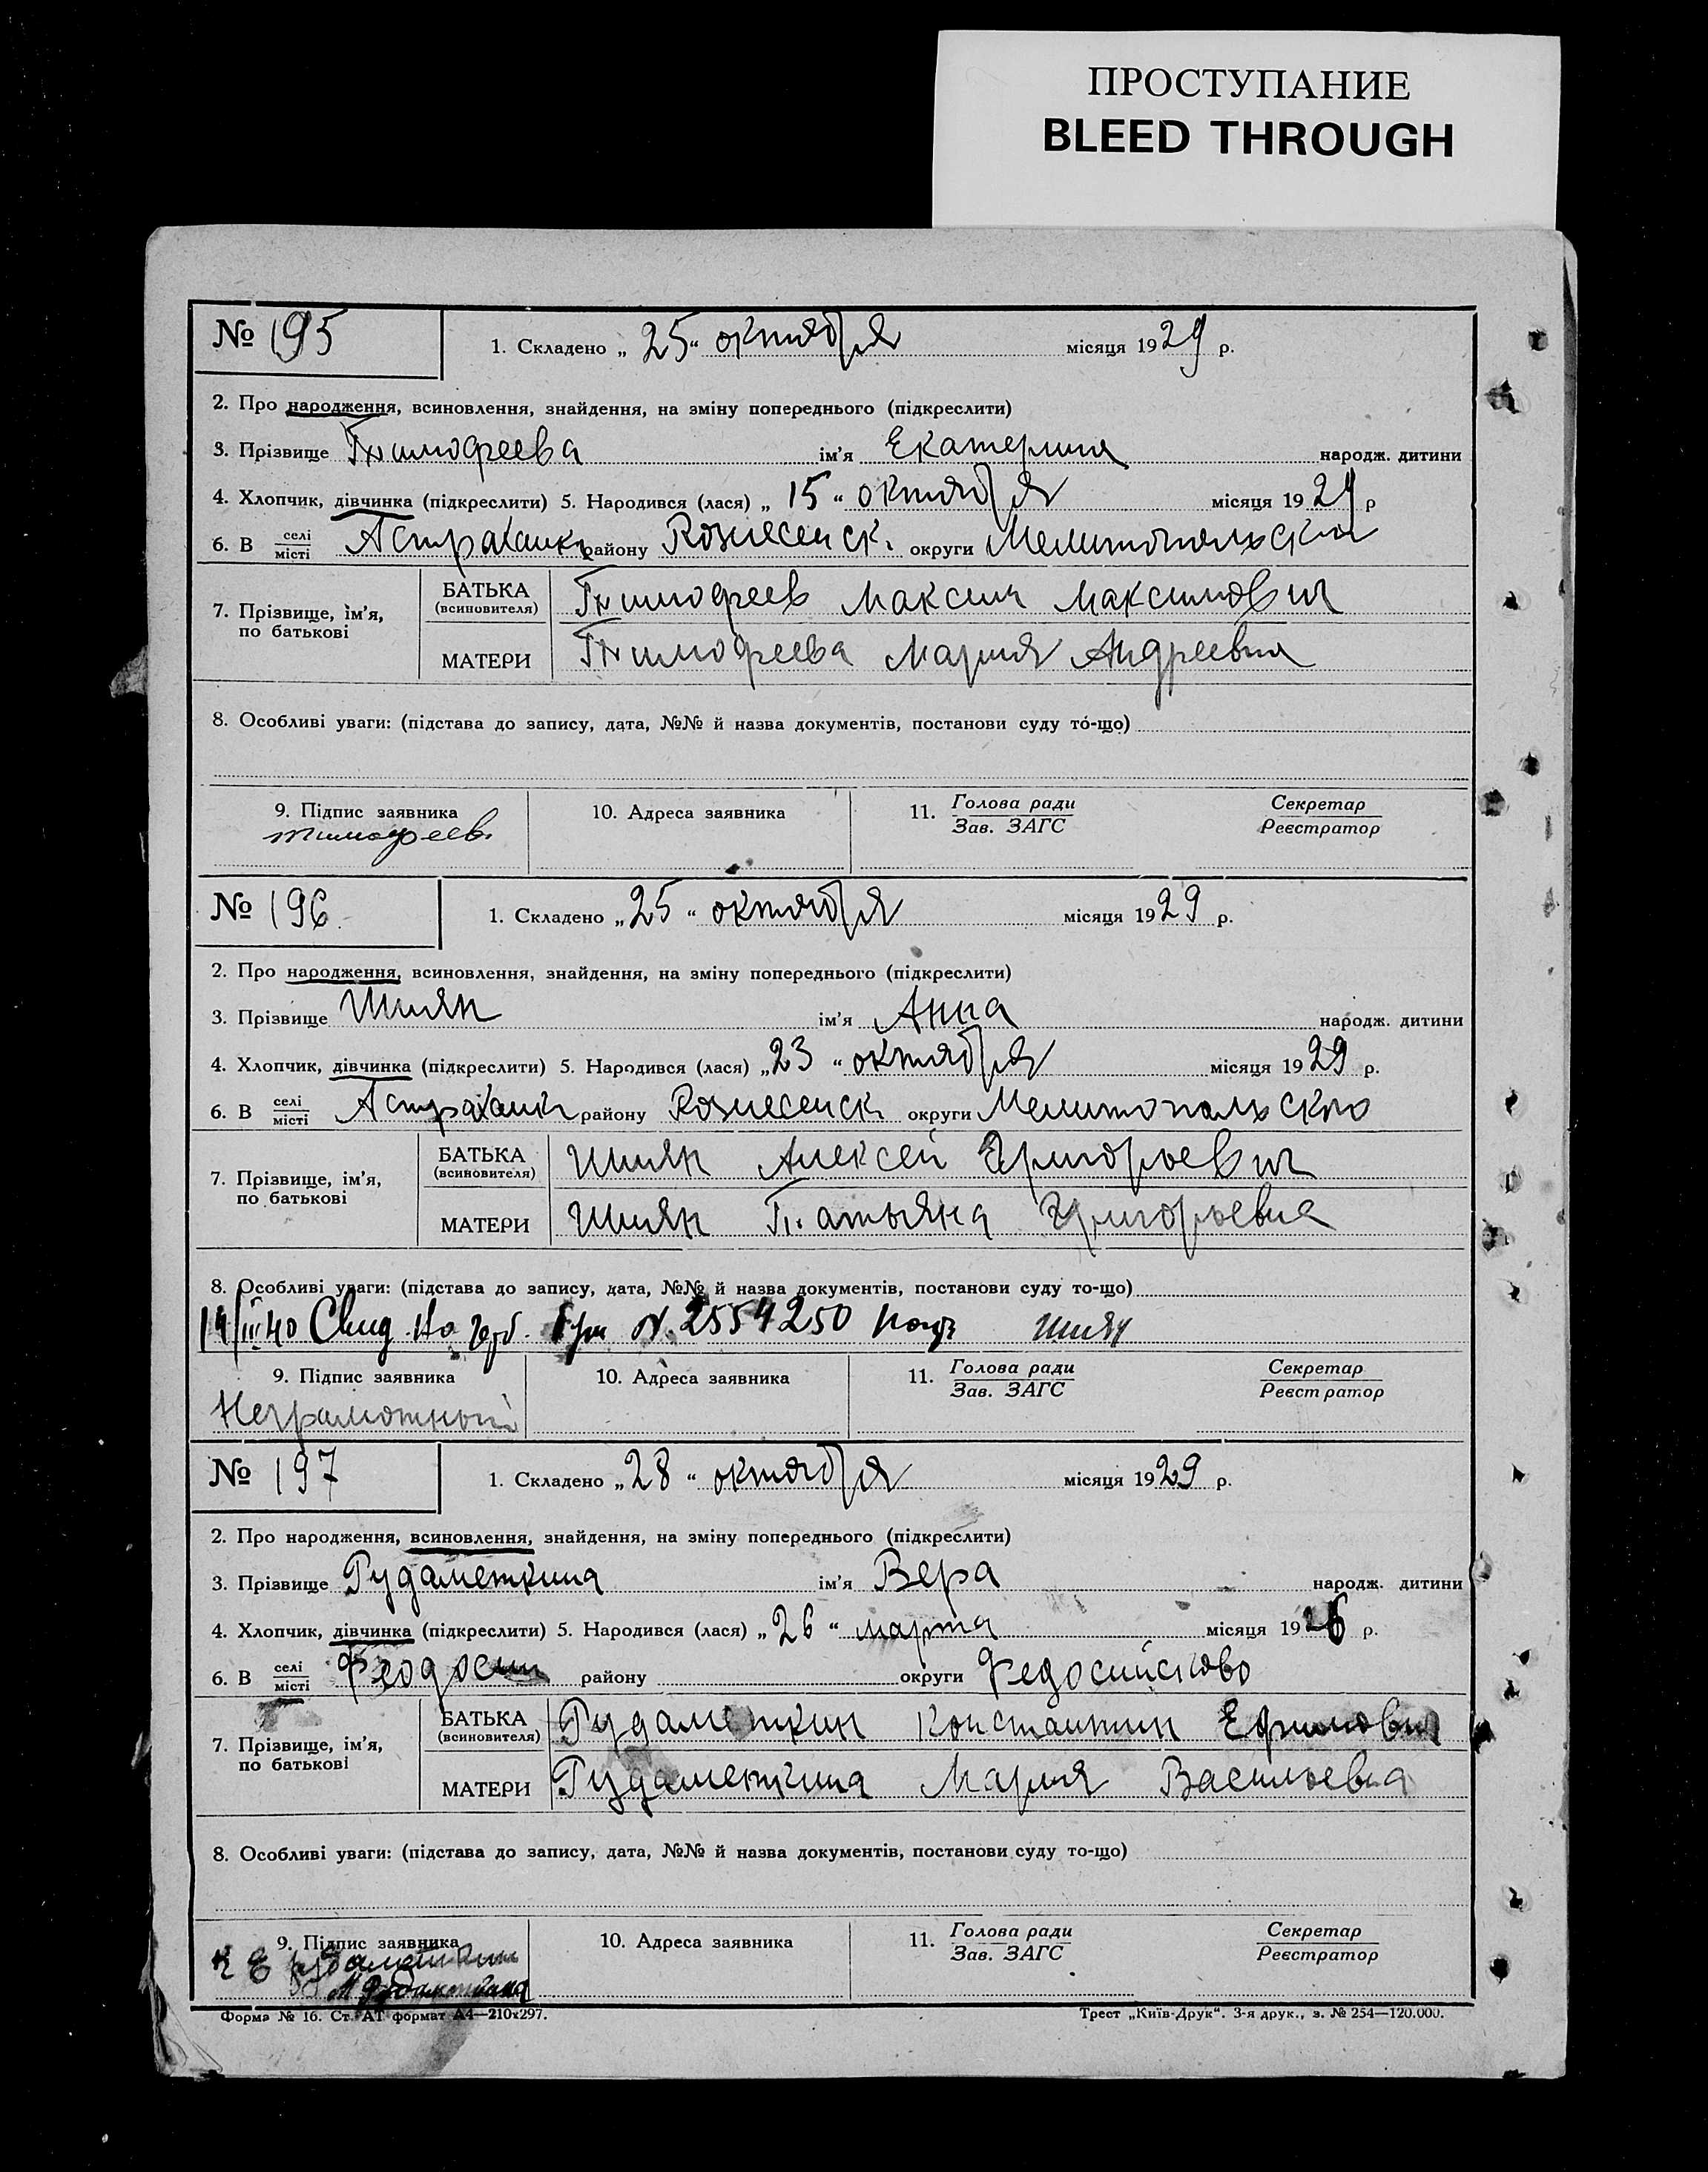 ПРОСТУПАНИЕ
BLEED THROUGH
№ 195
1. Складено „ 25 “ октября місяця 1929 р.
2. Про народження, всиновлення, знайдення, на зміну попереднього (підкреслити)
3. Прізвище Тимофеева ім'я Екатерина народж. дитини
4. Хлопчик, дівчинка (підкреслити) 5. Народився (лася) „ 15 “ октября місяця 1929 р
6. В селі/місті Астраханка району Вознесенск. округи Мелитопольско
7. Прізвище, ім'я, по батькові
БАТЬКА (всиновителя) Тимофеев Максим Максимович
МАТЕРИ Тимофеева Мария Андреевна
8. Особливі уваги: (підстава до запису, дата, №№ й назва документів, постанови суду то-що)
9. Підпис заявника 10. Адреса заявника 11. Голова ради/Зав. ЗАГС Секретар/Реєстратор
тимофеев.
№ 196
1. Складено „ 25 “ октября місяця 1929 р.
2. Про народження, всиновлення, знайдення, на зміну попереднього (підкреслити)
3. Прізвище Шиян ім'я Анна народж. дитини
4. Хлопчик, дівчинка (підкреслити) 5. Народився (лася) „ 23 “ октября місяця 1929 р.
6. В селі/місті Астраханк району Вознесенск. округи Мелитопольско
7. Прізвище, ім'я, по батькові
БАТЬКА (всиновителя) Шиян Алексей Григорьевич
МАТЕРИ Шиян Татьяна Григорьевна
8. Особливі уваги: (підстава до запису, дата, №№ й назва документів, постанови суду то-що)
14/III 40 Свид. на герб. бум N. 2554250 Шиян
9. Підпис заявника 10. Адреса заявника 11. Голова ради/Зав. ЗАГС Секретар/Реєстратор
Неграмотный
№ 197
1. Складено „ 28 “ октября місяця 1929 р.
2. Про народження, всиновлення, знайдення, на зміну попереднього (підкреслити)
3. Прізвище Рудаметкина ім'я Вера народж. дитини
4. Хлопчик, дівчинка (підкреслити) 5. Народився (лася) „ 26 “ марта місяця 1926 р.
6. В селі/місті Феодосии району округи Федосийсково
7. Прізвище, ім'я, по батькові
БАТЬКА (всиновителя) Рудаметкин Константин Ефимович
МАТЕРИ Рудаметкина Мария Васильевна
8. Особливі уваги: (підстава до запису, дата, №№ й назва документів, постанови суду то-що)
9. Підпис заявника 10. Адреса заявника 11. Голова ради/Зав. ЗАГС Секретар/Реєстратор
К Е Рудаметкин
Форма № 16. Ст. АТ формат А4—210х297. Трест „Київ-Друк“. 3-я друк., з. № 254—120.000.